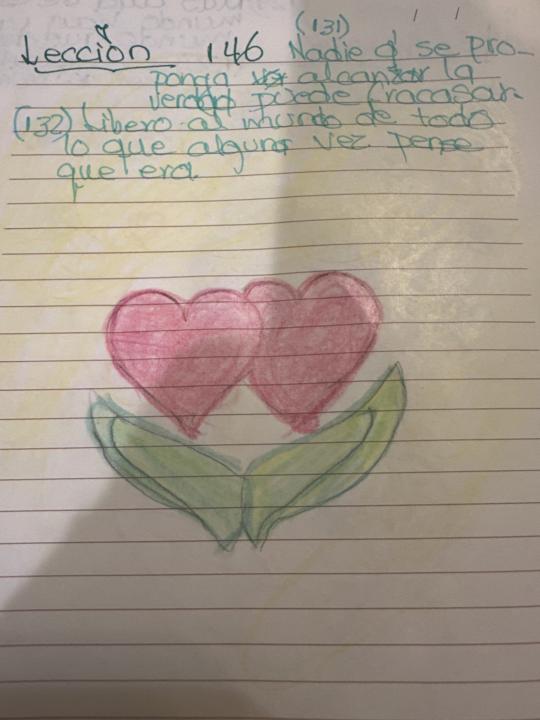 (131)
Lección 146 Nadie q' se pro-
ponga alcanzar la
verdad puede fracasar.
(132) Libero al mundo de todo
lo que alguna vez pense
que era.